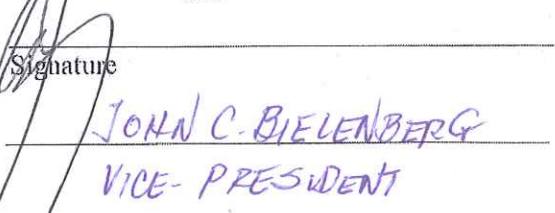 Signature
JOHN C. BIELENBERG
VICE-PRESIDENT